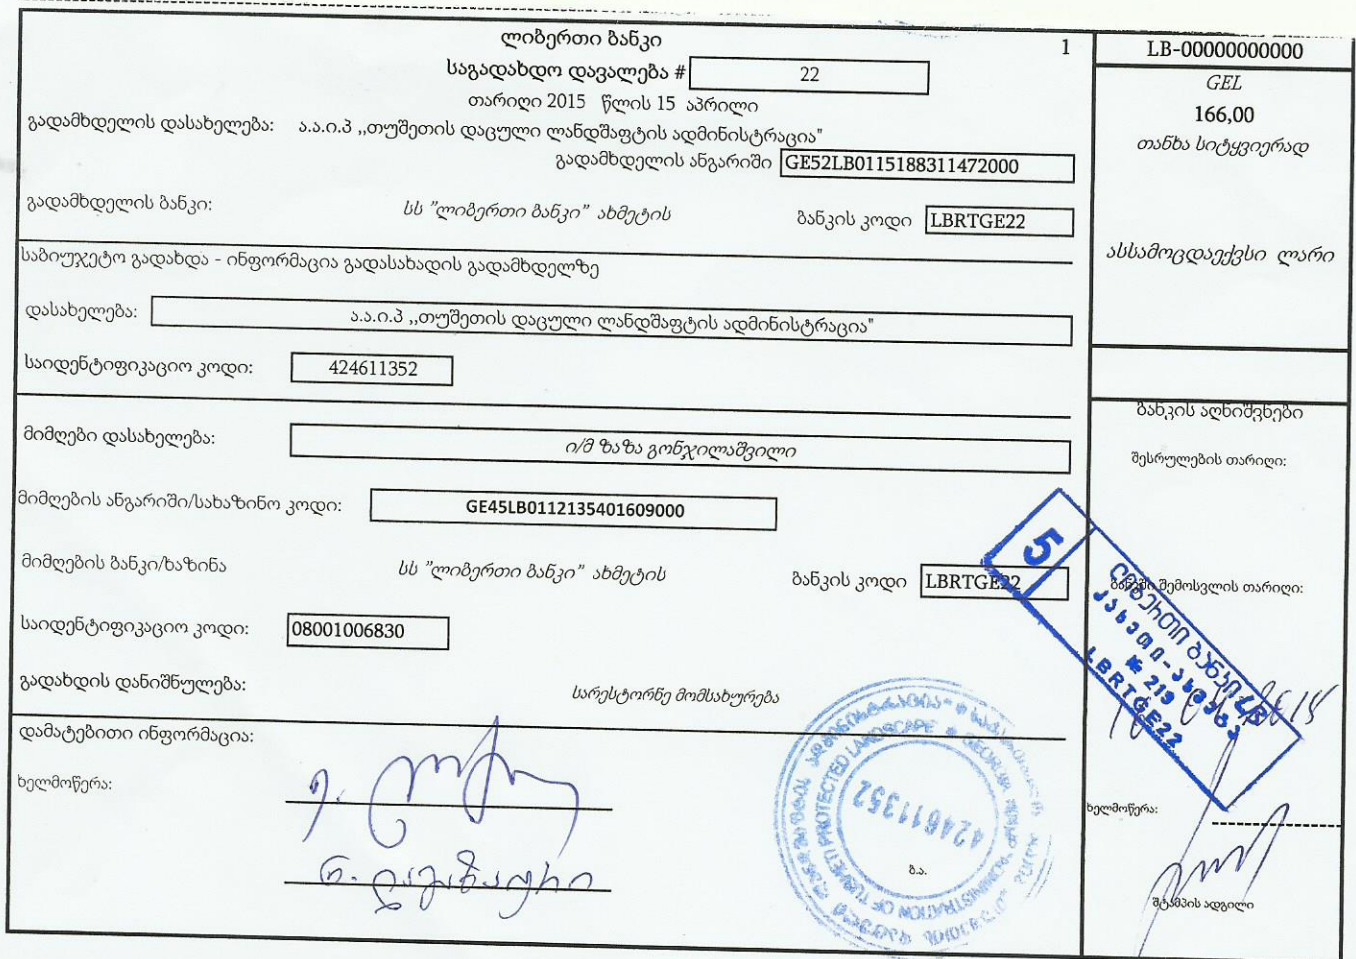 ლიბერთი ბანკი
1
საგადახდო დავალება # 22
თარიღი 2015 წლის 15 აპრილი
გადამხდელის დასახელება: ა.ა.ი.პ ,,თუშეთის დაცული ლანდშაფტის ადმინისტრაცია"
გადამხდელის ანგარიში GE52LB0115188311472000
გადამხდელის ბანკი: სს ”ლიბერთი ბანკი” ახმეტის ბანკის კოდი LBRTGE22
საბიუჯეტო გადახდა - ინფორმაცია გადასახადის გადამხდელზე
დასახელება: ა.ა.ი.პ ,,თუშეთის დაცული ლანდშაფტის ადმინისტრაცია"
საიდენტიფიკაციო კოდი: 424611352
მიმღები დასახელება: ი/მ ზაზა გონჯილაშვილი
მიმღების ანგარიში/სახაზინო კოდი: GE45LB0112135401609000
მიმღების ბანკი/ხაზინა სს ”ლიბერთი ბანკი” ახმეტის ბანკის კოდი LBRTGE22
საიდენტიფიკაციო კოდი: 08001006830
გადახდის დანიშნულება: სარესტორნე მომსახურება
დამატებითი ინფორმაცია:
ხელმოწერა:
ბ.ა.
424611352
ADMINISTRATION OF TUSHETI PROTECTED LANDSCAPE
LB-00000000000
GEL
166,00
თანხა სიტყვიერად
ასსამოცდაექვსი ლარი
ბანკის აღნიშვნები
შესრულების თარიღი:
ბანკში შემოსვლის თარიღი:
5
ლიბერთი ბანკი LB
კახეთი-ახმეტა
№ 219
LBRTGE22
ხელმოწერა:
შტამპის ადგილი